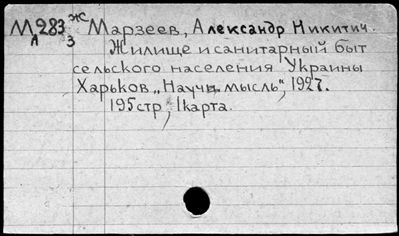 М283 Ж Марзеев, Александр Никитич.
А 3 Жилище и санитарный быт
сельского населения Украины
Харьков „Научн. мысль“, 1927.
195 стр, 1 карта.